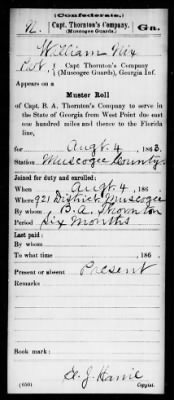 (Confederate.)
N. Capt. Thornton's Company. Ga.
(Muscogee Guards.)
William Nix
Pvt Capt Thornton's Company
(Muscogee Guards), Georgia Inf.
Appears on a
Muster Roll
of Capt. B. A. Thornton's Company to serve in
the State of Georgia from West Point due east
one hundred miles and thence to the Florida
line,
for Augt. 4, 1863.
Station Muscogee County
Joined for duty and enrolled:
When Augt. 4, 186 .
Where 921 District Muscogee
By whom B. A. Thornton
Period Six Months
Last paid:
By whom
To what time , 186 .
Present or absent Present
Remarks
Book mark:
(659) Copyist.